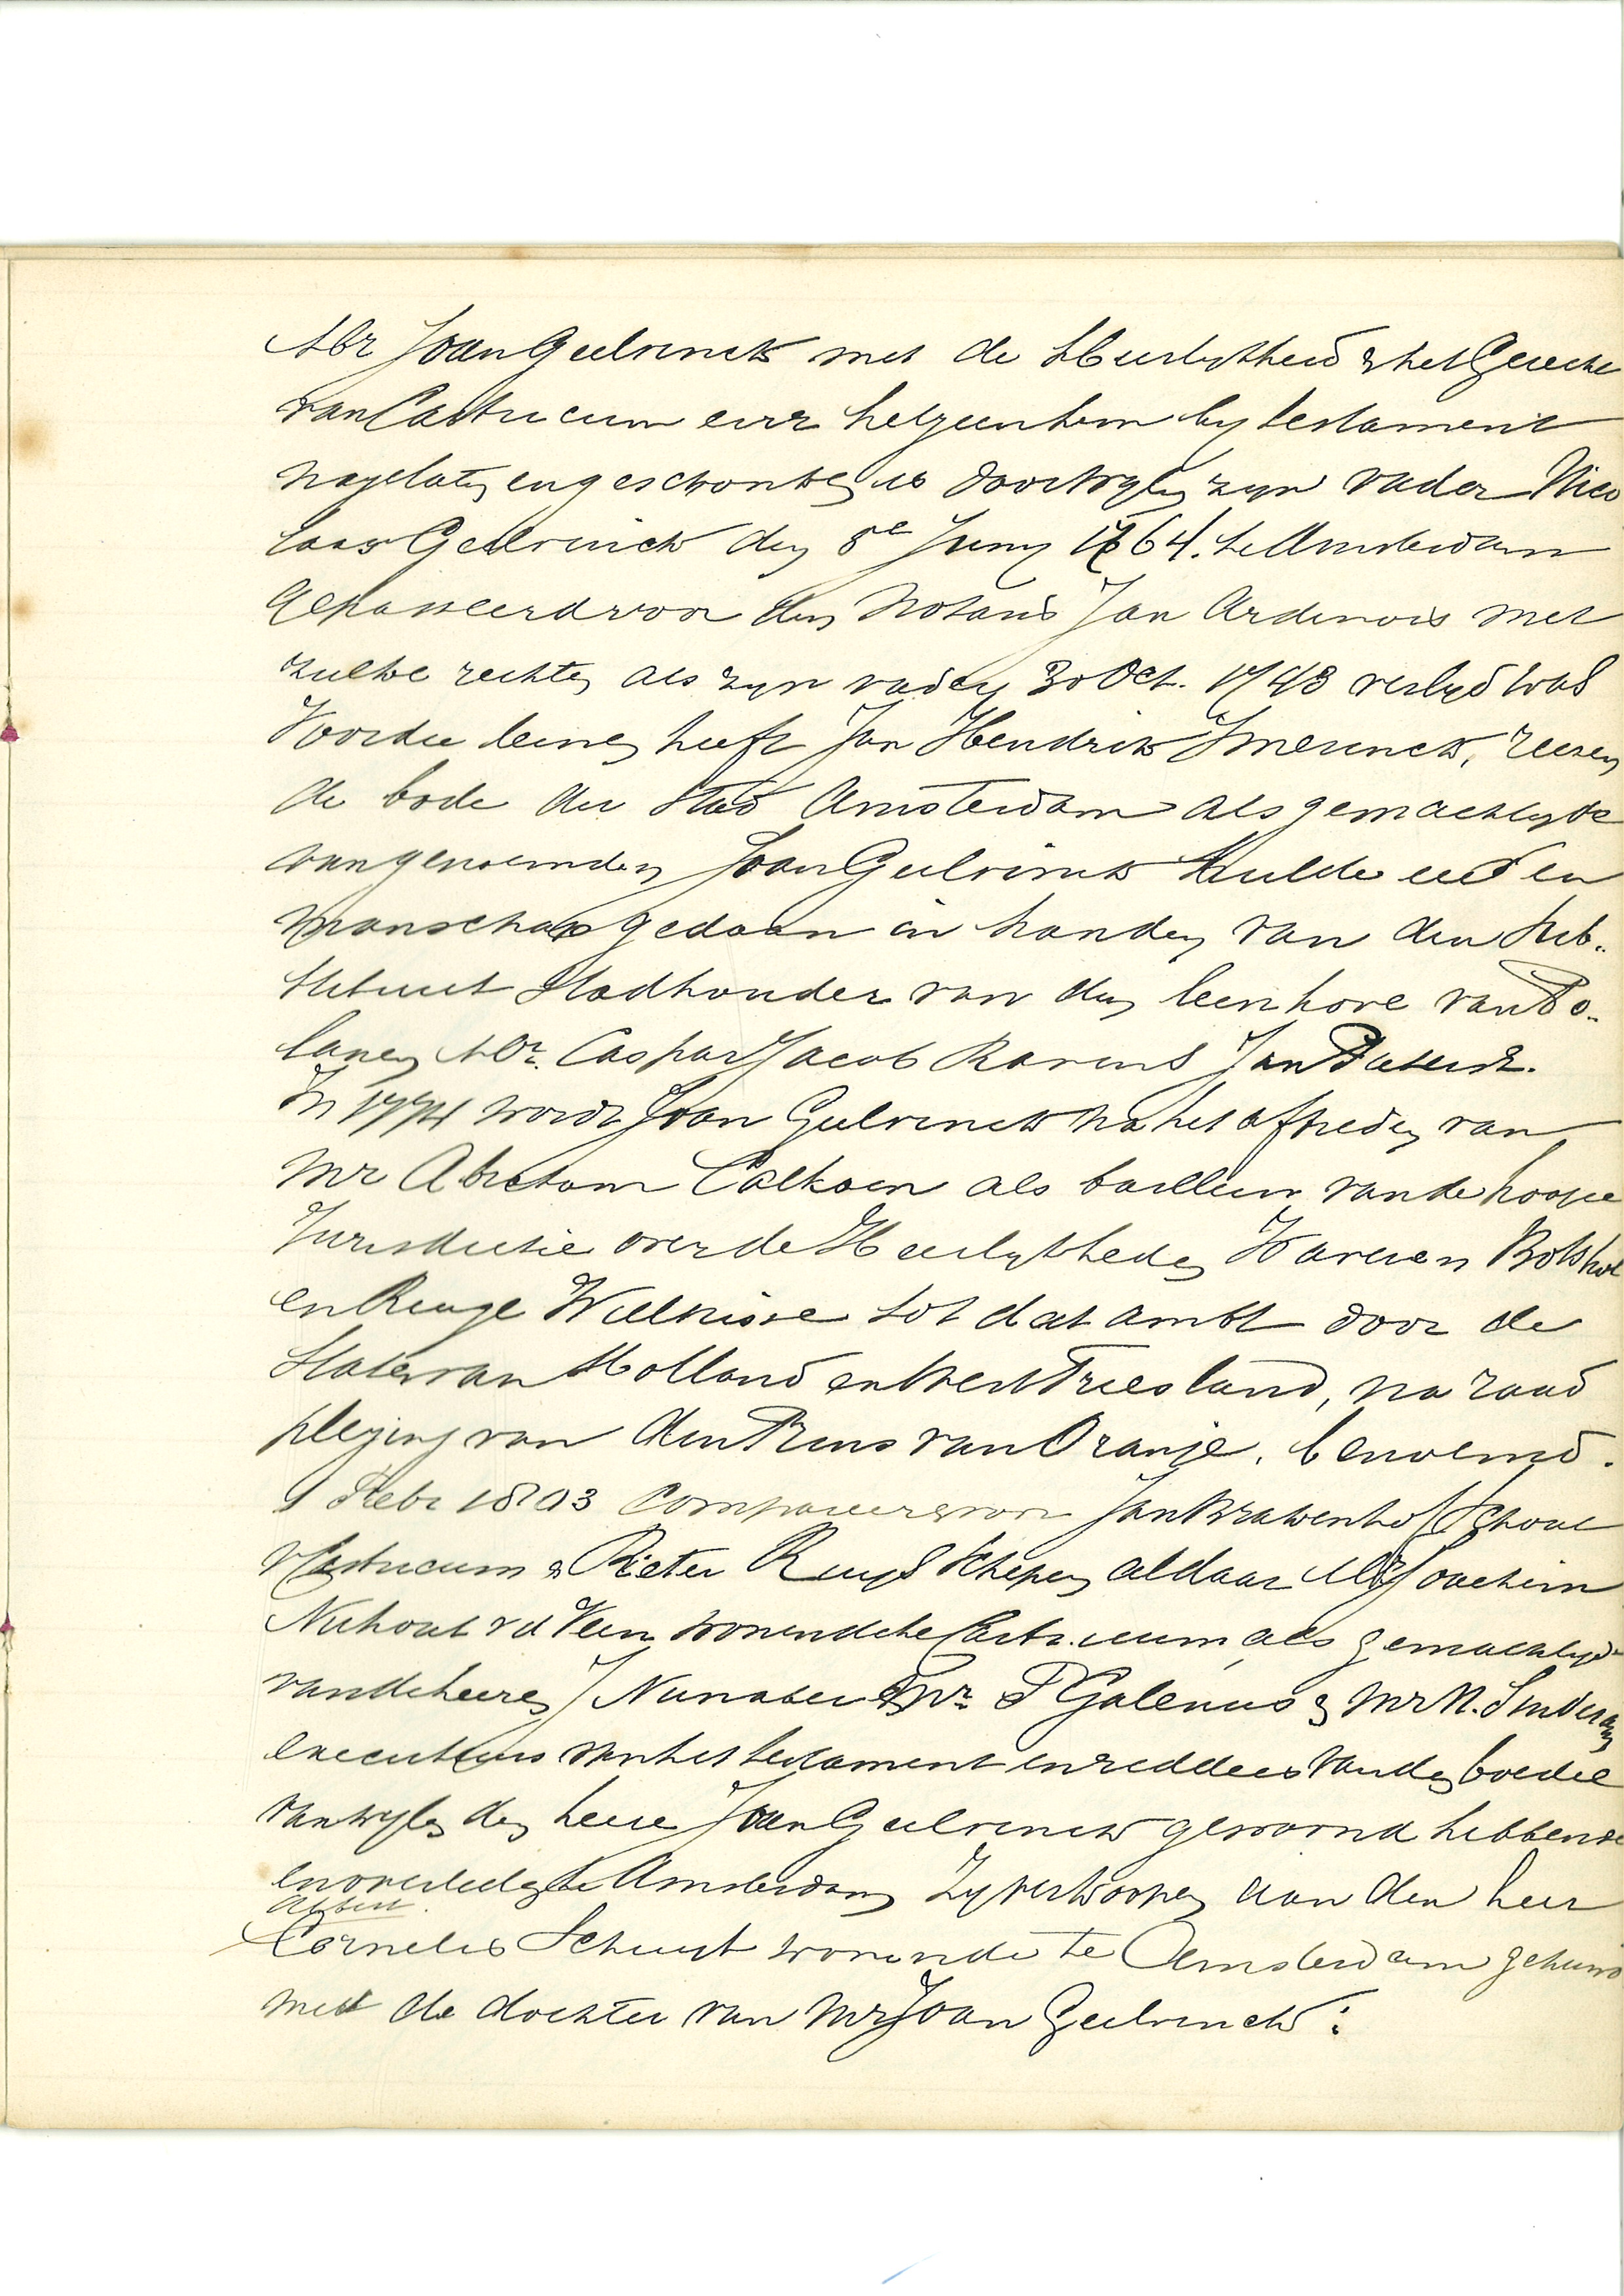 Mr Joan Geelvinck met de Heerlykheid & het Gerecht
van Castricum enz hetgeen hem by testament
nagelaten en geschonken is door wylen zyn vader Nico
laas Geelvinck den 8e Juny 1764. te Amsterdam
gepasseerd voor den Notaris Jan Ardinois met
zulke rechten als zyn vader 30 Oct. 1743 verlyd was
Voor die leenen heeft Jan Hendrik Smerinck, reizen
de bode der stad Amsterdam als gemachtigde
van genoemden Joan Geelvinck hulde eed en
manschap gedaan in handen van den sub-
stituut Stadhouder van den leenhove van Po-
lanen Mr. Caspar Jacob Ravens Jan
In 1774 wordt Joan Geelvinck na het aftreden van
Mr Abraham Calkoen als bailluw van de hooge
Jurisdictie over de Heerlykheden Waveren Botshol
en Ruige Wilnisse tot dat ambt door de
Staten van Holland en West Friesland, na raad
pleging van den Prins van Oranje, benoemd.
9 Febr 1803 compareeren voor Jan Brakenhof Schout
v Castricum & Pieter Kuys Schepen aldaar Mr Joachim
Nuhout v d Veen wonende te Castricum, als gemachtigde
van de heeren J Mr. P Galenus & Mr N.
executeurs van het testament en redders van den boedel
van wylen den heere Joan Geelvinck gewoond hebbende
en overleden te Amsterdam Zy verkoopen aan den heer
Albert
Cornelis Schuyt wonende te Amsterdam gehuwd
met de dochter van Mr Joan Geelvinck: